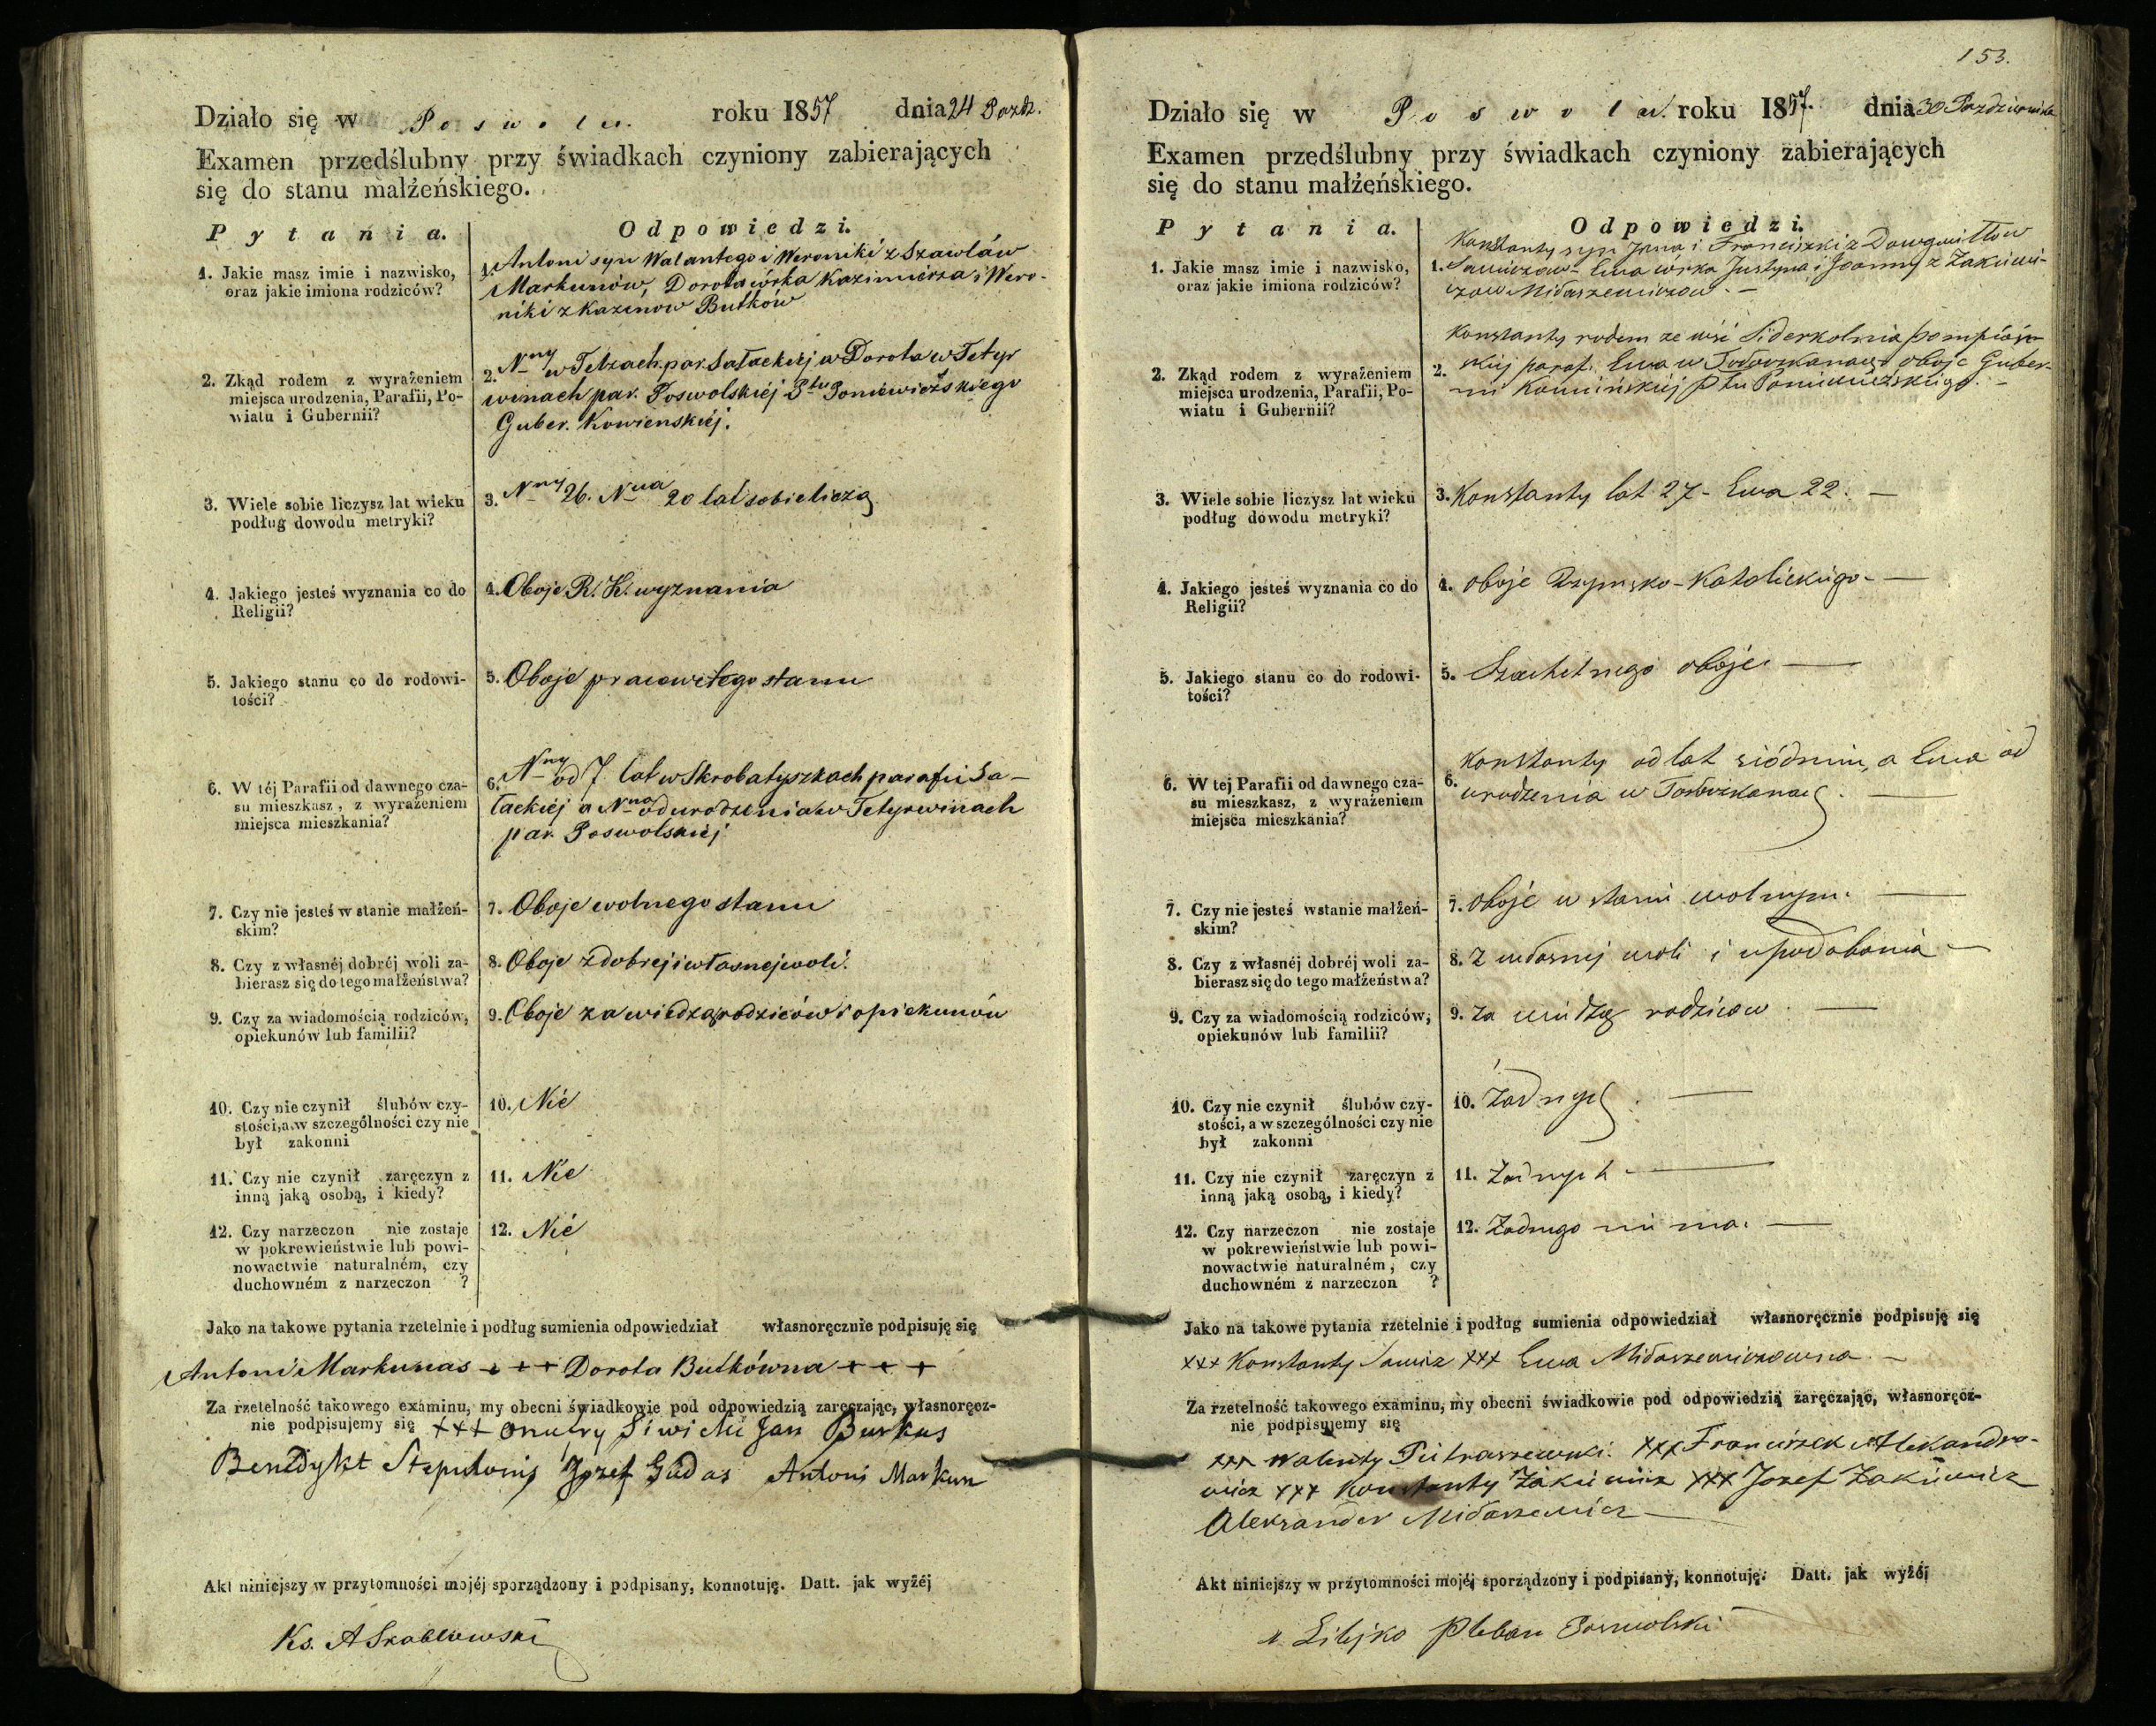 Działo się w Poswolu roku 1857 dnia 24 Pazdz.
Examen przedślubny przy świadkach czyniony zabierających
się do stanu małżeńskiego.
Pytania. Odpowiedzi.
1. Jakie masz imie i nazwisko,
oraz jakie imiona rodziców?
1. Antoni syn Walantego i Weroniki z Szawlów
Markunów, Dorota córka Kazimierza i Wero-
niki z Kazenow Butków
2. Zkąd rodem z wyrażeniem
miejsca urodzenia, Parafii, Po-
wiatu i Gubernii?
2. Nny w Telzach par. Sałackiej a Dorota w Tetyr
winach par. Poswolskiéj Ptu Poniewieżskiego
Guber. Kowienskiéj.
3. Wiele sobie liczysz lat wieku
podług dowodu metryki?
3. Nny 26. Nna 20 lat sobie liczą
4. Jakiego jesteś wyznania co do
Religii?
4. Oboje R. K. wyznania
5. Jakiego stanu co do rodowi-
tości?
5. Oboje pracowitego stanu
6. W téj Parafii od dawnego cza-
su mieszkasz, z wyrażeniem
miejsca mieszkania?
6. Nny od 7 lat w Skrobatyszkach parafii Sa-
łackiej a Nna od urodzenia w Tetyrwinach
par. Poswolskiéj
7. Czy nie jesteś w stanie małżeń-
skim?
7. Oboje wolnego stanu
8. Czy z własnéj dobréj woli za-
bierasz się do tego małżeństwa?
8. Oboje z dobrej i własnej woli.
9. Czy za wiadomością rodziców,
opiekunów lub familii?
9. Oboje za wiedzą rodziców i opiekunów
10. Czy nie czynił ślubów czy-
stości, a w szczególności czy nie
był zakonni
10. Nie
11. Czy nie czynił zaręczyn z
inną jaką osobą, i kiedy?
11. Nie
12. Czy narzeczon nie zostaje
w pokrewieństwie lub powi-
nowactwie naturalném, czy
duchowném z narzeczon ?
12. Nie
Jako na takowe pytania rzetelnie i podług sumienia odpowiedział własnoręcznie podpisuję się
Antoni Markunas +++ Dorota Butkówna +++
Za rzetelność takowego examinu, my obecni świadkowie pod odpowiedzią zaręczając, własnoręcz-
nie podpisujemy się +++ Onufry Jan Burkus
Benedykt Jozef Gudas Antoni Markun
Akt niniejszy w przytomności mojéj sporządzony i podpisany, konnotuję. Datt. jak wyżéj
Ks. A Skablewski
153.
Działo się w Poswolu. roku 1857. dnia 30 Pazdziernika
Examen przedślubny przy świadkach czyniony zabierających
się do stanu małżeńskiego.
Pytania. Odpowiedzi.
1. Jakie masz imie i nazwisko,
oraz jakie imiona rodziców?
Konstanty syn Jana i Franciszki z Dowgwiłłow
1. Sawiczow - Ewa córka Justyna i Joanny z Zakiewi-
czow Midaszewiczow. -
2. Zkąd rodem z wyrażeniem
miejsca urodzenia, Parafii, Po-
wiatu i Gubernii?
Konstanty rodem ze wsi
2. skiej paraf. Ewa w oboje Guber-
nii Kowieńskiej Ptu Poniewieżskiego. -
3. Wiele sobie liczysz lat wieku
podług dowodu metryki?
3. Konstanty lat 27 - Ewa 22. -
4. Jakiego jesteś wyznania co do
Religii?
4. oboje Rzymsko-Katolickiego -
5. Jakiego stanu co do rodowi-
tości?
5. Szachetnego oboje. -
6. W tej Parafii od dawnego cza-
su mieszkasz, z wyrażeniem
miejsca mieszkania?
Konstanty od lat siódmiu, a Ewa od
6. urodzenia w -
7. Czy nie jesteś w stanie małżeń-
skim?
7. oboje w stanie wolnym. -
8. Czy z własnéj dobréj woli za-
bierasz się do tego małżeństwa?
8. z własnej woli i upodobania -
9. Czy za wiadomością rodziców,
opiekunów lub familii?
9. za wiedzą rodzicow. -
10. Czy nie czynił ślubów czy-
stości, a w szczególności czy nie
był zakonni
10. żadnych. -
11. Czy nie czynił zaręczyn z
inną jaką osobą, i kiedy?
11. Żadnych -
12. Czy narzeczon nie zostaje
w pokrewieństwie lub powi-
nowactwie naturalném, czy
duchowném z narzeczon ?
12. Żadnego nie ma. -
Jako na takowe pytania rzetelnie i podług sumienia odpowiedział własnoręcznie podpisuję się
+++ Konstanty Sawicz +++ Ewa Midaszewiczowna. -
Za rzetelność takowego examinu, my obecni świadkowie pod odpowiedzią zaręczając, własnoręcz-
nie podpisujemy się
+++ Walenty Pietraszewski. +++ Franciszek Alexandro-
wicz +++ Konstanty Zakiewicz +++ Jozef Zakiewicz
Alexander Midaszewicz
Akt niniejszy w przytomności mojéj sporządzony i podpisany, konnotuję. Datt. jak wyżéj
Pleban Poswolski